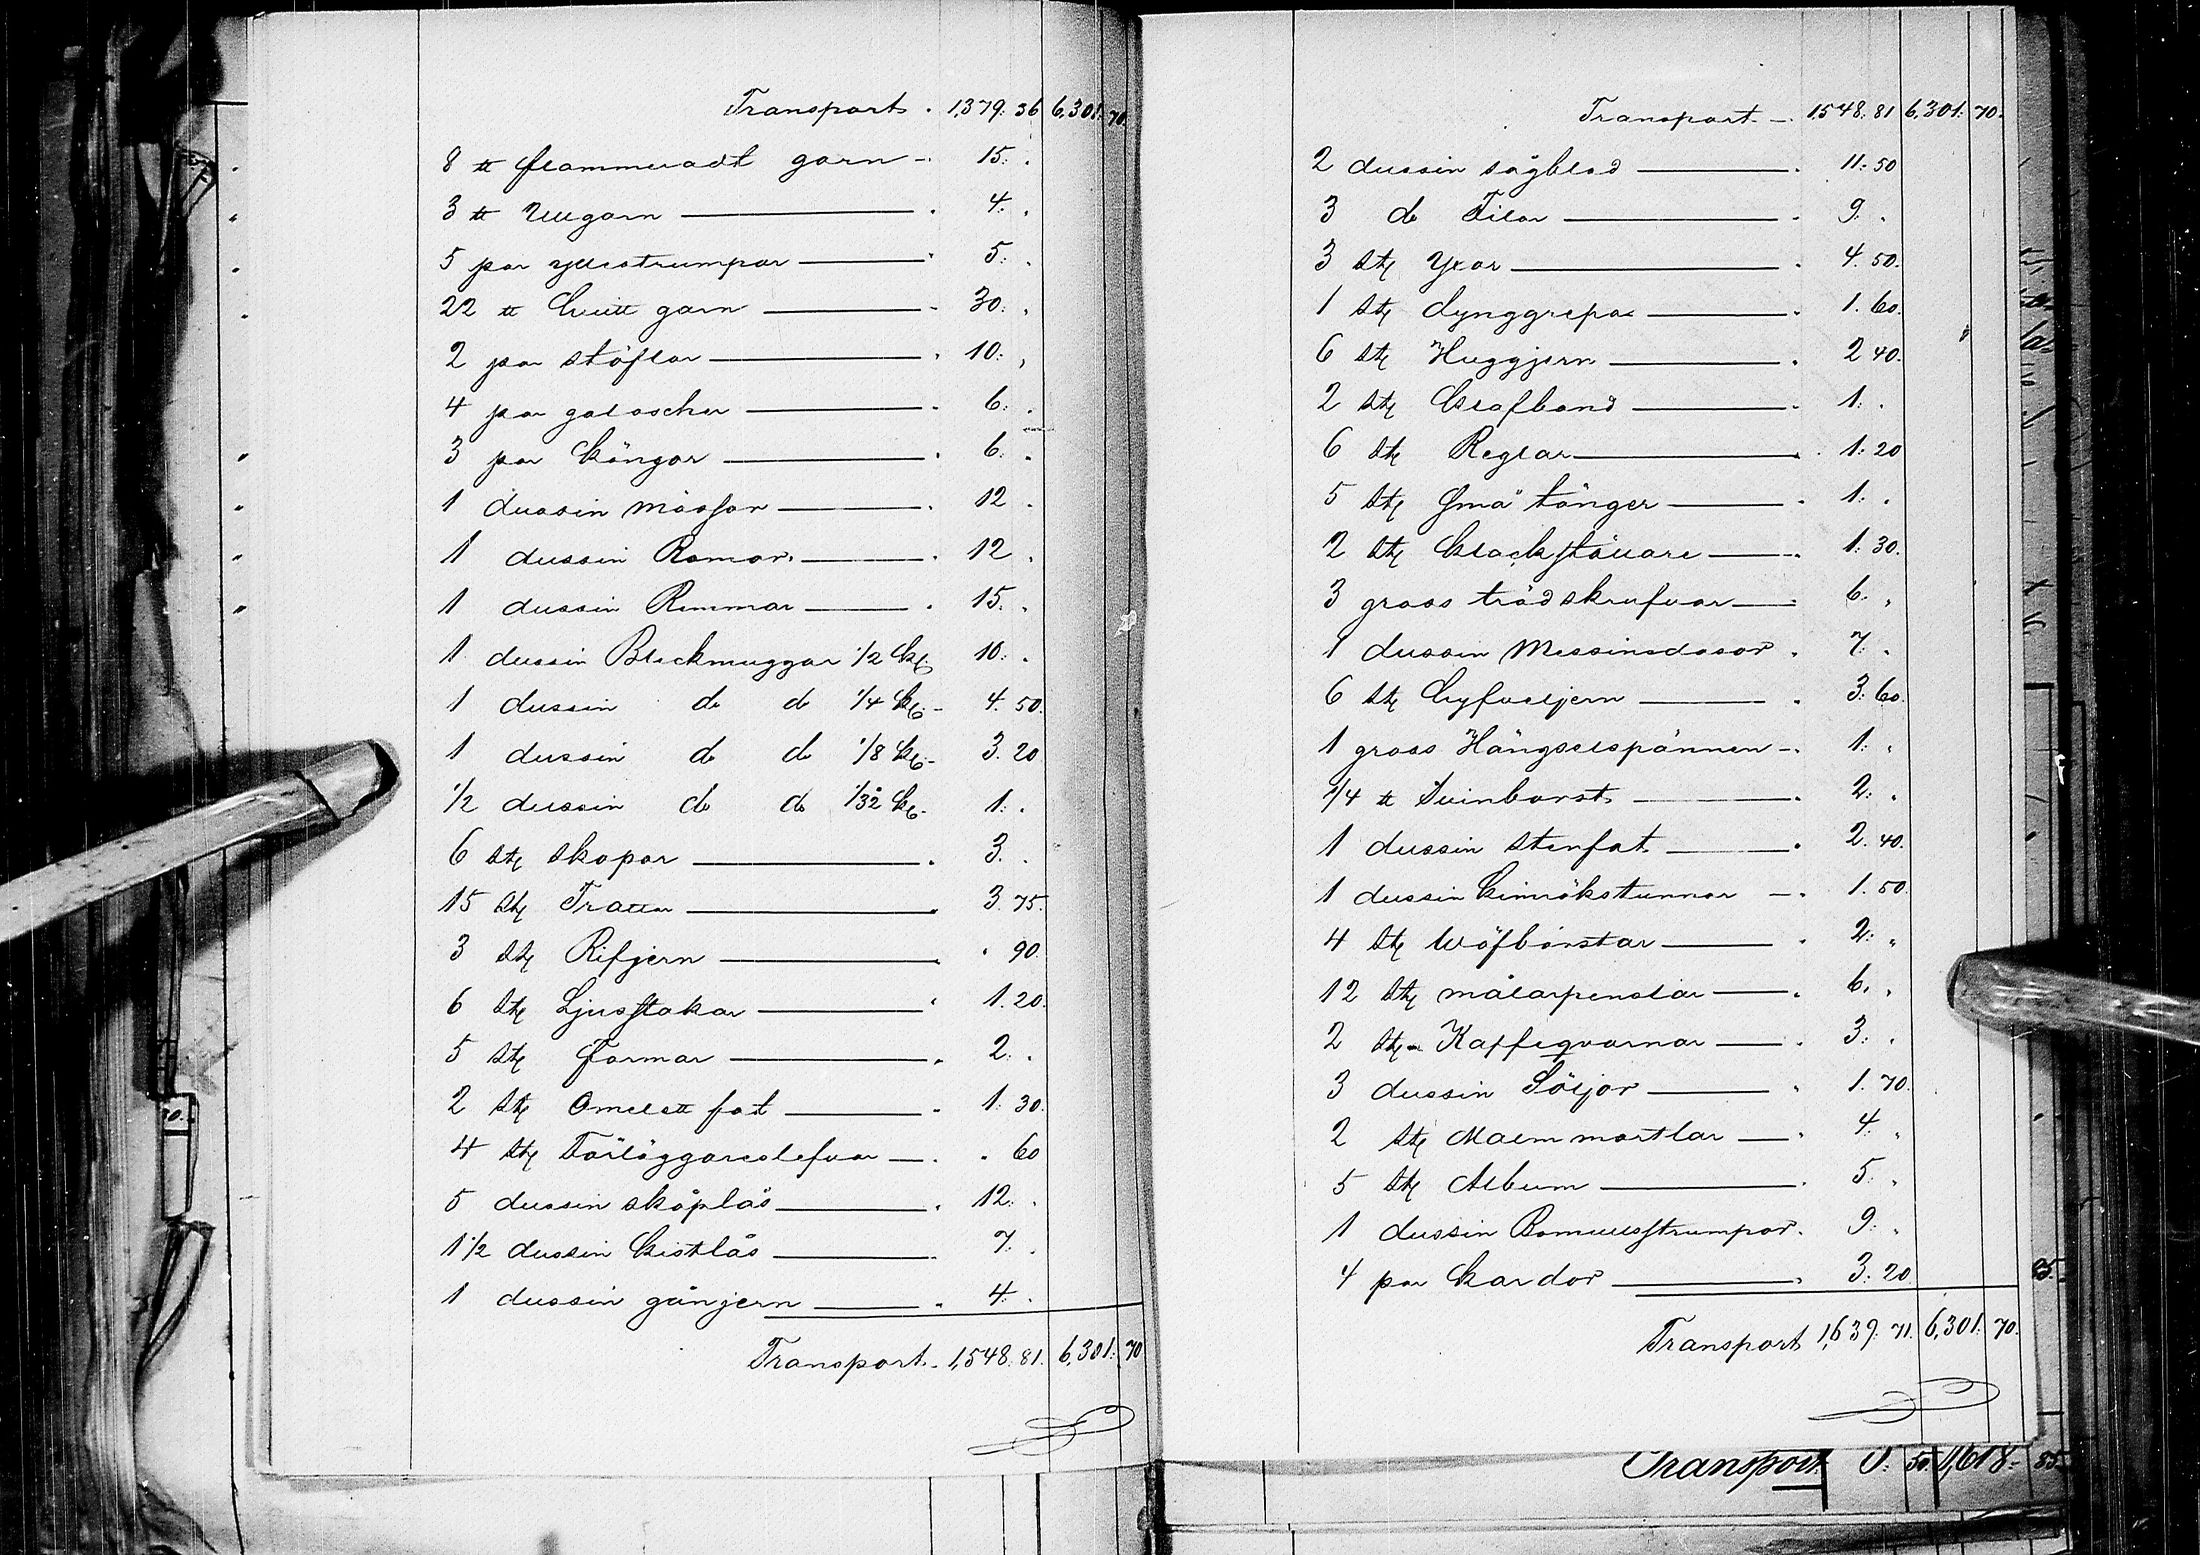 Transport . 1,379. 36 6,301. 70.
8 ℔ flammeradt garn - 15: .
3 ℔ Ullgarn 4: .
5 par yllestrumpor 5: .
22 ℔ hvitt garn 30: .
2 par stöflar 10: .
4 par galoscher 6: .
3 par kängor 6: .
1 dussin mössor 12 .
1 dussin Ramar 12 .
1 dussin Remmar 15: .
1 dussin Bleckmuggar 1/2 kb. 10: .
1 dussin do do 1/4 kb. 4. 50.
1 dussin do do 1/8 kb. 3. 20
1/2 dussin do do 1/32 kb. 1: .
6 st skopor 3. .
15 st Trattar 3. 75.
3 st Rifjern . 90.
6 st Ljusstakar 1. 20.
5 st Formar 2: .
2 st Omelett fat 1. 30.
4 st Förläggareslefvar . 60
5 dussin skåplås 12: .
1 1/2 dussin kistlås 7: .
1 dussin gånjern 4: .
Transport. 1,548. 81. 6,301: 70
Transport. 1548. 81 6,301: 70.
2 dussin sågblad 11: 50
3 do Filar 9. .
3 st Yxor 4. 50.
1 st dynggrepar 1. 60.
6 st Huggjern 2 40.
2 st 1: .
6 st Reglar 1: 20
5 st små tänger 1: .
2 st 1: 30.
3 gross trädskrufvar 6. .
1 dussin Messinsdosor . 7: .
6 st Hyfveljern 3: 60.
1 gross Hängselspännen 1: .
1/4 ℔ Svinborst 2: .
1 dussin stenfat 2. 40.
1 dussin kimrökstunnor 1. 50.
4 st 2: "
12 st målarpenslar 6. .
2 st Kaffeqvarnar 3: .
3 dussin Söljor 1. 70.
2 st Malmmortlar 4: .
5 st Album 5: .
1 dussin Bomullsstrumpor. 9: .
4 par kardor 3: 20.
Transport 1,639. 71. 6,301. 70.
Transport 50 1,618. 85.